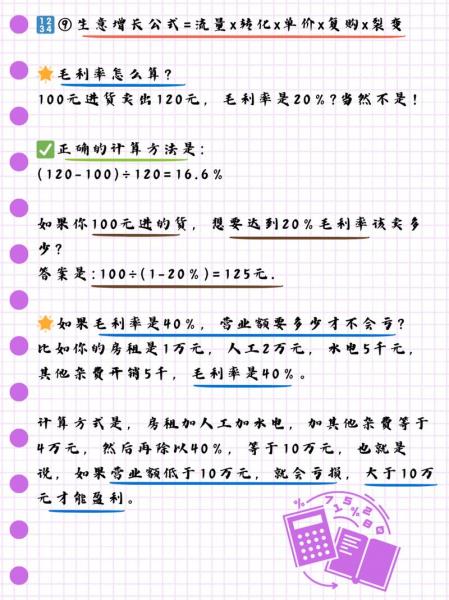 🔢⑨生意增长公式=流量x转化x单价x复购x裂变
🌟毛利率怎么算?
100元进货卖出120元, 毛利率是20%?当然不是!
✅正确的计算方法是:
(120-100)÷120=16.6%
如果你100元进的货, 想要达到20%毛利率该卖多
少?
答案是:100÷(1-20%)=125元.
🌟如果毛利率是40%, 营业额要多少才不会亏?
比如你的房租是1万元, 人工2万元, 水电5千元,
其他杂费开销5千, 毛利率是40%。
计算方式是, 房租加人工加水电, 加其他杂费等于
4万元, 然后再除以40%, 等于10万元, 也就是
说, 如果营业额低于10万元, 就会亏损, 大于10万
元才能盈利。
% 7 5 2
1 % 8 0